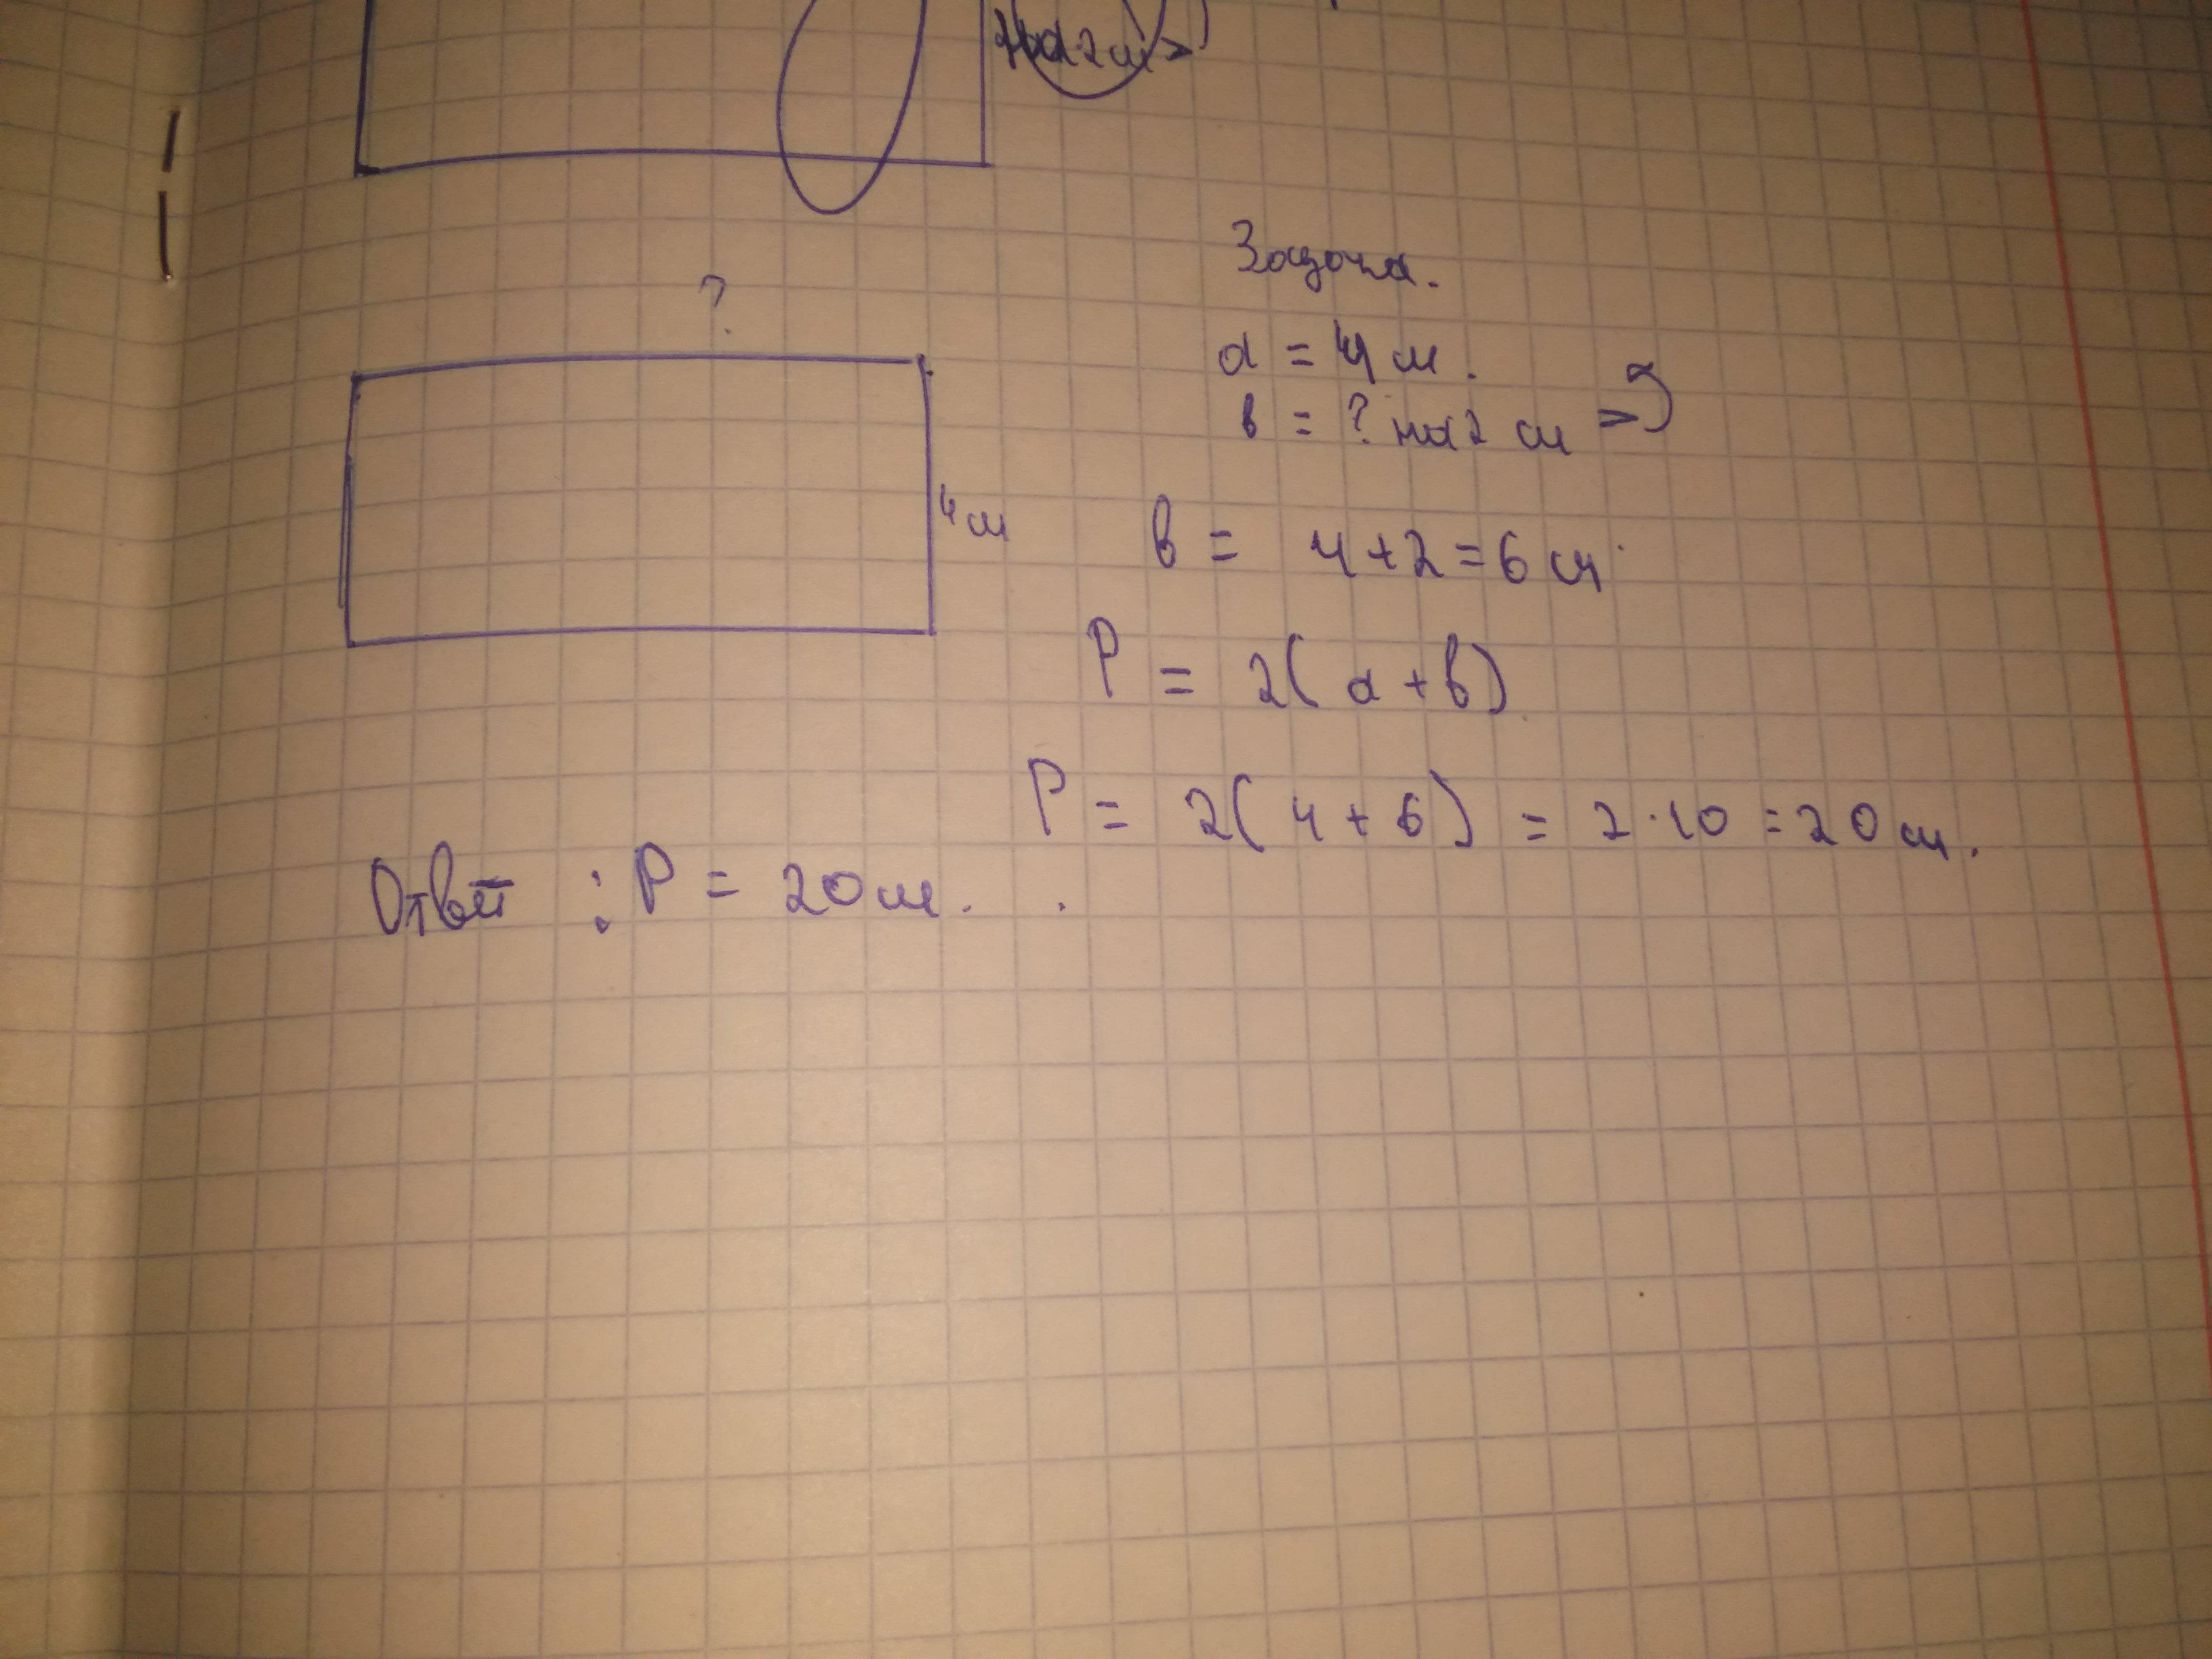 на 2 см >
Задача.
?
a = 4 см.
в = ? на 2 см >
4 см
в = 4 + 2 = 6 см
P = 2( a + в)
P = 2( 4 + 6 ) = 2 · 10 = 20 см.
Ответ : P = 20 см.